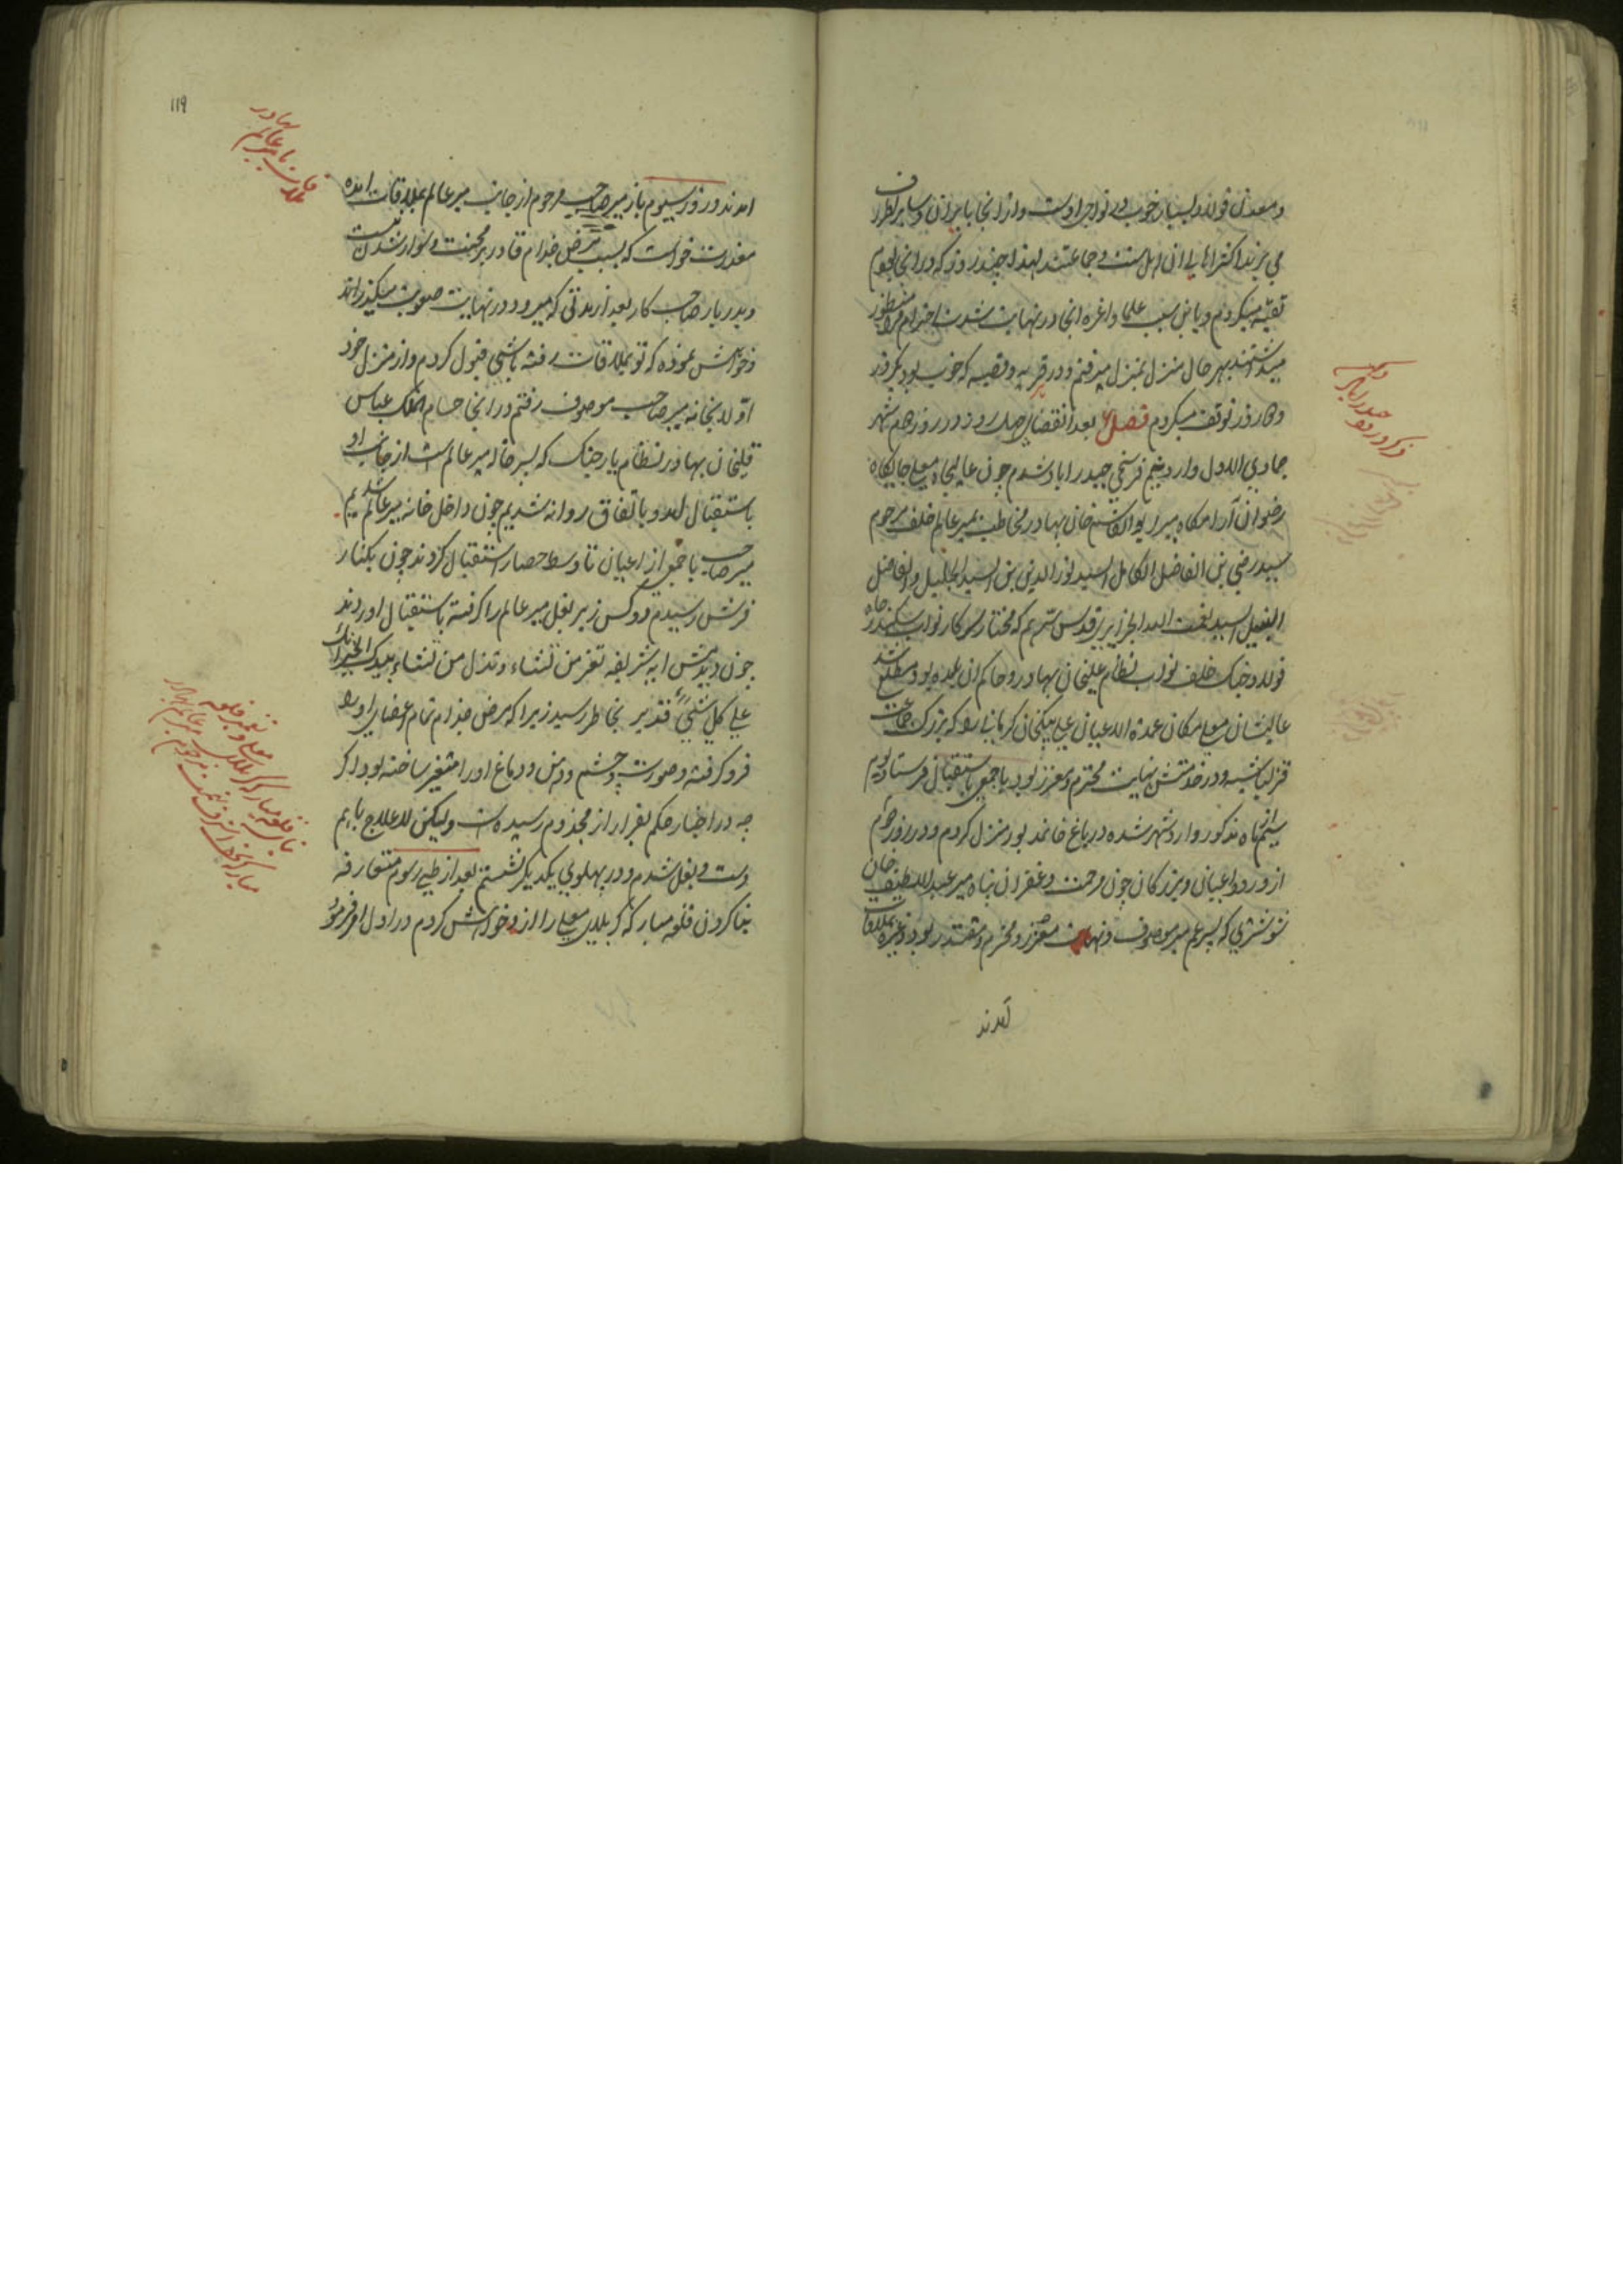 و معدن فولاد بسیار خوب در نواحی اوست و از انجا بایران و سایر اطراف
می برند اکثر اهالی ان اهل سنت و جماعتند لهذا چند روز که در انجا بودم
تقیه میکردم و باین سبب علما و اعزه انجا در نهایت شدت احترام مرا منظور
میداشتند بهر حال منزل بمنزل میرفتم و در قریه و قصبه که خوب بود یکروز
و دو روز توقف میکردم فصل بعد از انقضای چهل روز در روز دهم شهر
جمادی الاول وارد پنج فرسخی حیدراباد شدم چون عالیجاه معلی جایگاه
رضوان آرامگاه میر ابوالقاسم خان بهادر مخاطب بمیر عالم خلف مرحوم
سید رضی بن الفاضل الکامل السید نورالدین بن السید الجلیل والفاضل
النبیل السید نعمت الله الجزایری قدس سرهم که مختار سرکار نواب سکندر جاه
فولاد جنک خلف نواب نظام علیخان بهادر و حاکم ان بلده بود مطلع شد
عالیشان معلی مکان عمده الاعیان علی بیکخان کرمانی را که بزرک جماعت
قزلباشیه و در خدمتش نهایت محترم و معزز بود با جمعی باستقبال فرستاد یوم
ماه مذکور وارد شهر شده در باغ منزل کردم و در روز دوم
از ورود اعیان و بزرکان چون مرحمت و غفران پناه میر عبداللطیف خان
شوشتری که پسر عم میر موصوف و نهایت معزز و محترم و مقتدر بود و غیره بملاقات
آمدند
ذکر ورود حیدراباد دکن
۱۱۹
ملاقات با میر عالم بهادر
امدند و روز سیوم باز میر صاحب مرحوم از جانب میر عالم بملاقات امده
معذرت خواست که بسبب مرض جذام قادر بر حرکت و سوار شدن نیست
و بدربار صاحب کار بعد از مدتی که میرود در نهایت صعوبت میگذراند
و خواهش نموده که تو بملاقات رفته باشی قبول کردم و از منزل خود
اولا بخانه میر صاحب موصوف رفتم در انجا حسام الملک عباس
قلیخان بهادر نظام یار جنک که پسر خاله میر عالم است از جانب او
باستقبال امد و باتفاق روانه شدیم چون داخل خانه میر عالم شدیم
میر صاحب با جمعی از اعیان تا وسط حصار استقبال کردند چون بکنار
فرش رسیدم دو کس زیر بغل میر عالم را کرفته باستقبال اوردند
چون دیدمش ایه شریفه تعز من تشاء و تذل من تشاء بیدک الخیر انک
علی کل شئی قدیر بخاطر رسید زیرا که مرض جذام تمام اعضای او را
فرو کرفته و صورت و چشم و دهن و دماغ او را متغیر ساخته بود اکر
چه در اخبار حکم بفرار از مجذوم رسیده است ولیکن لاعلاج باهم
دست و بغل شدم و در پهلوی یکدیکر نشستم بعد از طی رسوم متعارفه
بنا کردن قلعه مبارکه کربلای معلی را از او خواهش کردم در اول او فرمود